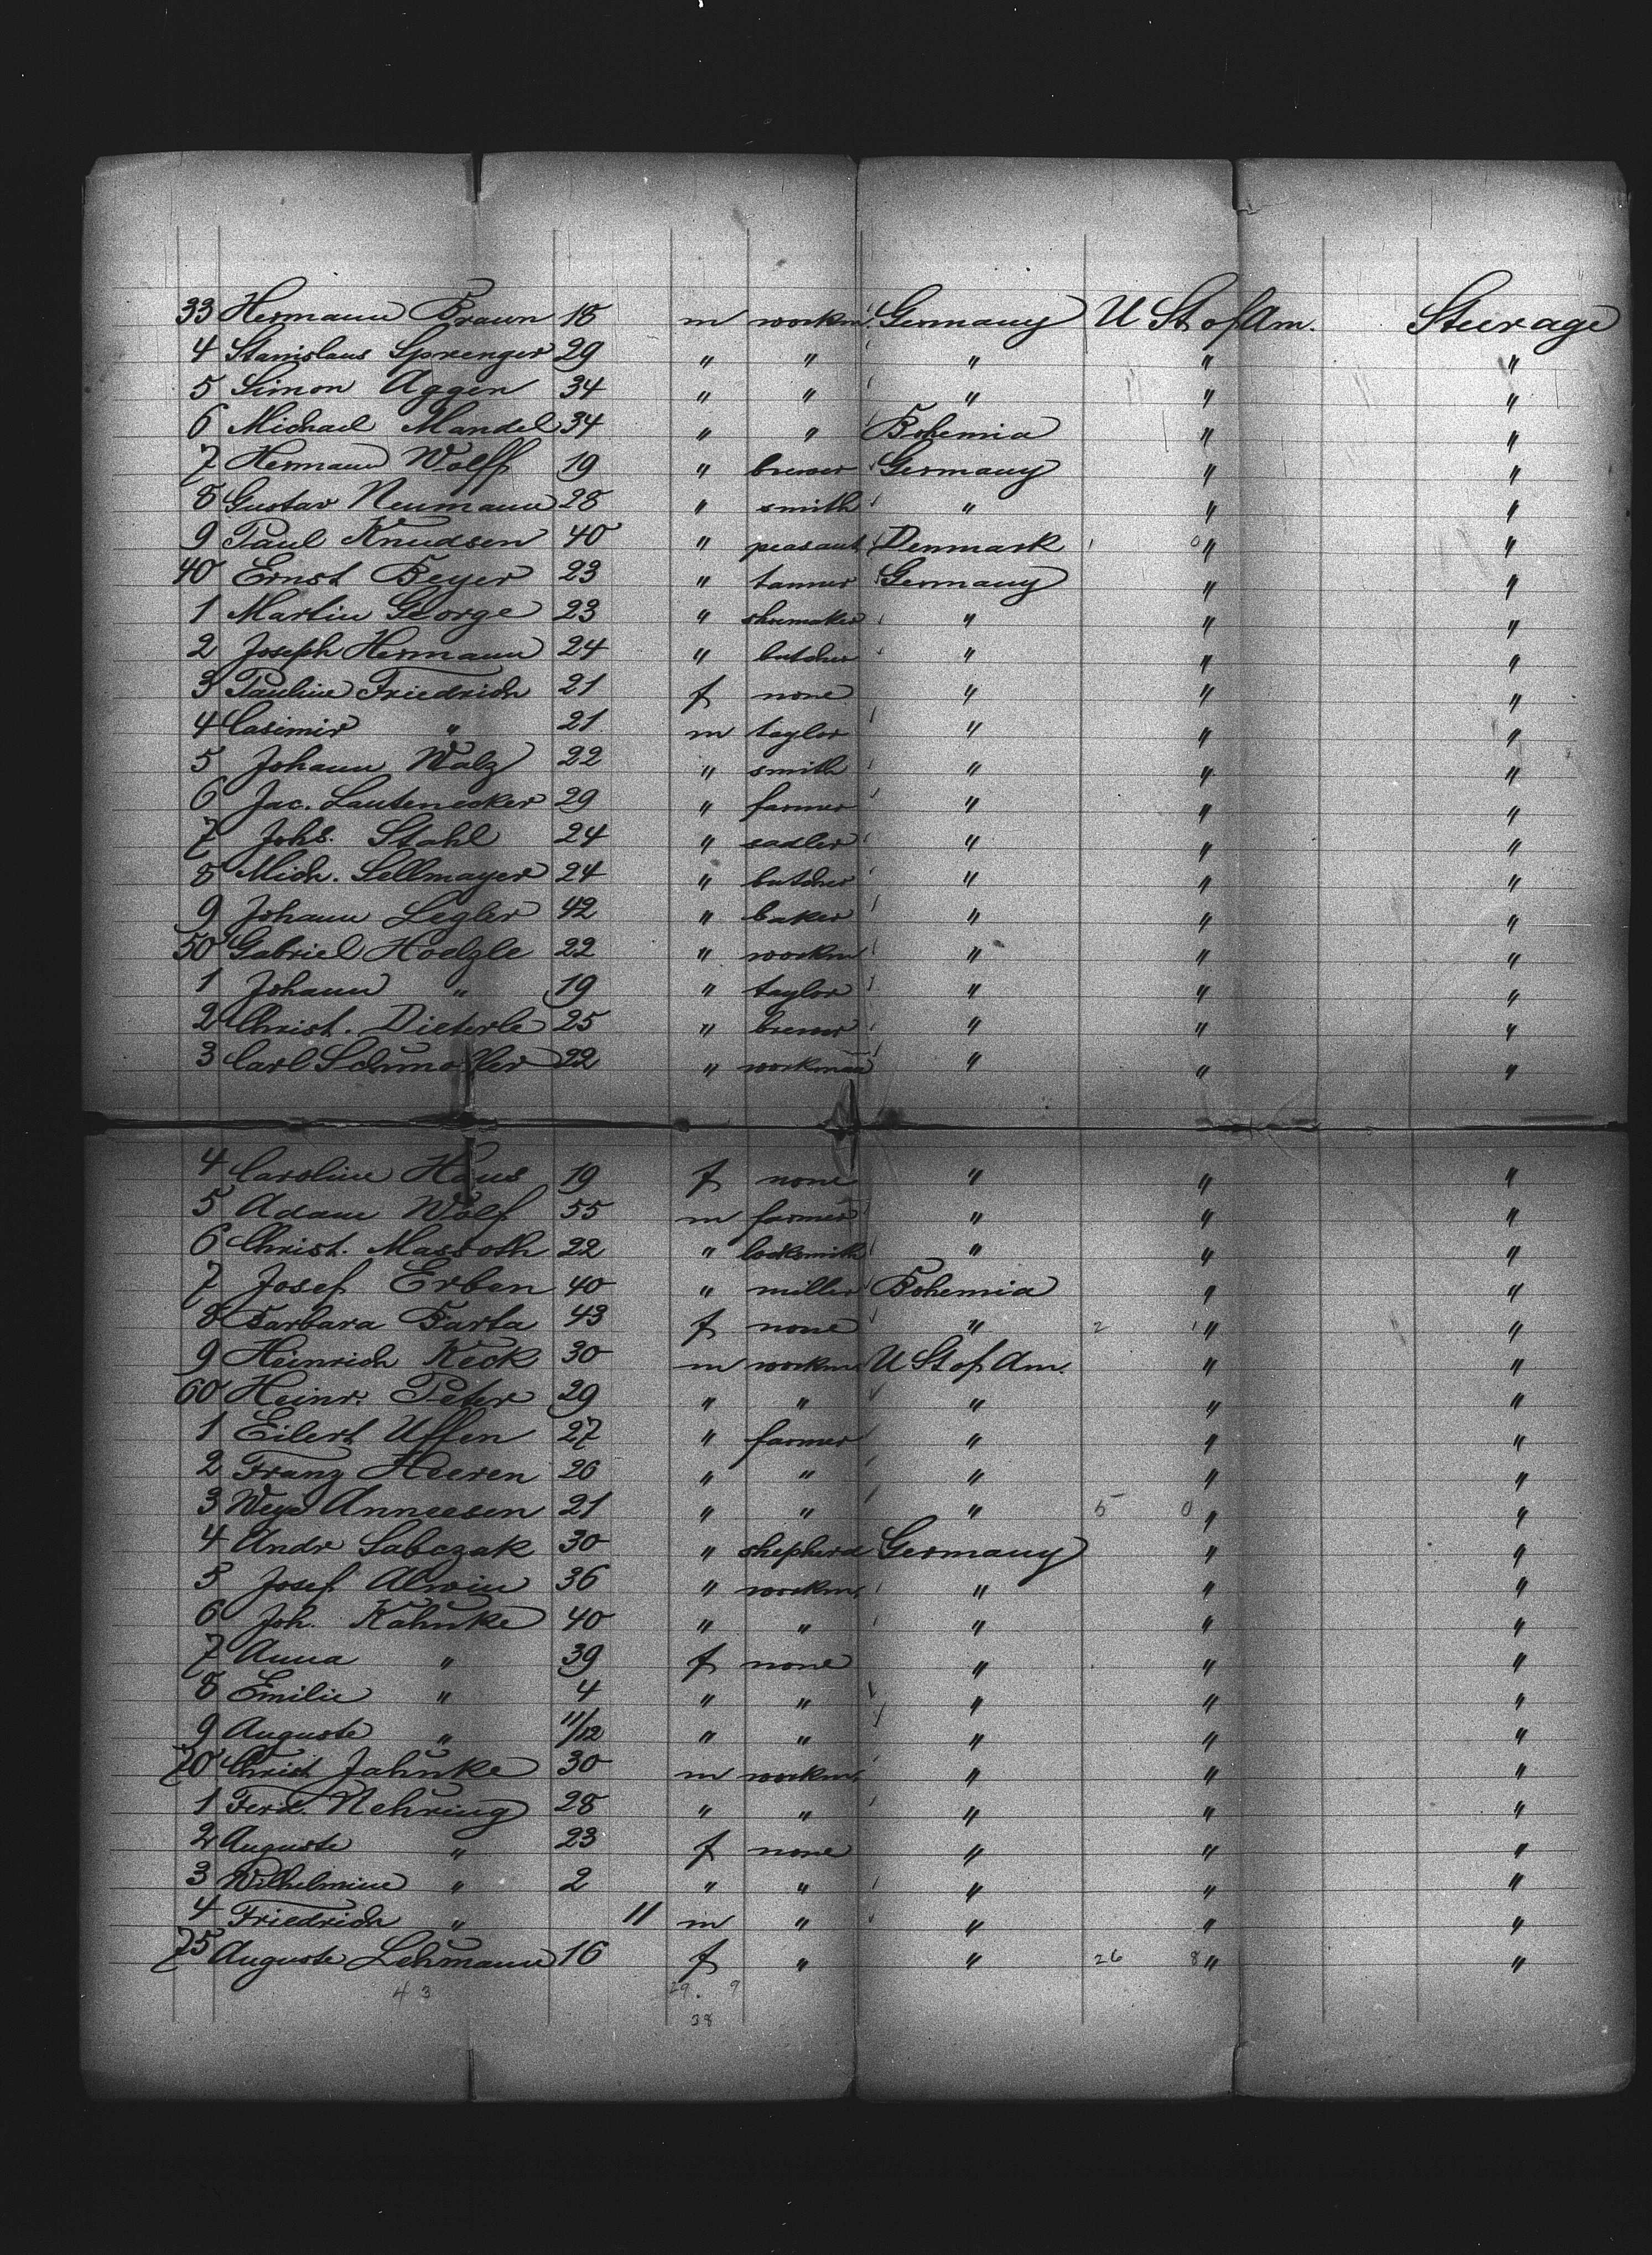 33 Hermann Braun 18 m workm. Germany U St of Am. Steerage
4 Stanislaus Sprenger 29 " " " " "
5 Simon Aggen 34 " " " " "
6 Michael Mandel 34 " " Bohemia " "
7 Hermann Wolff 19 " brewer Germany " "
8 Gustav Neumann 28 " smith " " "
9 Paul Knudsen 40 " peasant Denmark 1 0 " "
40 Ernst Beyer 23 " tanner Germany " "
1 Martin George 23 " shumaker " " "
2 Joseph Hermann 24 " butcher " " "
3 Pauline Friedrich 21 f none " " "
4 Casimir " 21 m taylor " " "
5 Johann Walz 22 " smith " " "
6 Jac. Lautenecker 29 " farmer " " "
7 Johs. Stahl 24 " sadler " " "
8 Mich. Sellmayer 24 " butcher " " "
9 Johann Legler 42 " baker " " "
50 Gabriel Hoelzle 22 " workm " " "
1 Johann " 19 " taylor " " "
2 Christ. Dieterle 25 " brewer " " "
3 Carl 22 " workman " " "
4 Caroline Haus 19 f none " " "
5 Adam Wolf 55 m farmer " " "
6 Christ. Massoth 22 " locksmith " " "
7 Josef Erben 40 " miller Bohemia " "
8 Barbara Barta 43 f none " 2 1 " "
9 Heinrich Keck 30 m workm. U St of Am. " "
60 Heinr. Peter 29 " " " " "
1 Eilert Uffen 27 " farmer " " "
2 Franz Heeren 26 " " " " "
3 Weye Anneesen 21 " " " 5 0 " "
4 Andr Sabczak 30 " shepherd Germany " "
5 Josef Alwin 36 " workm. " " "
6 Joh. Kahnke 40 " " " " "
7 Anna " 39 f none " " "
8 Emilie " 4 " " " " "
9 Auguste " 11/12 " " " " "
70 Christ Jahnke 30 m workm. " " "
1 Ferd. Nehring 28 " " " " "
2 Auguste " 23 f none " " "
3 Wilhelmine " 2 " " " " "
4 Friedrich " 11 m " " " "
75 Auguste Lehmann 16 f " " 26 8 " "
43 29. 9
38